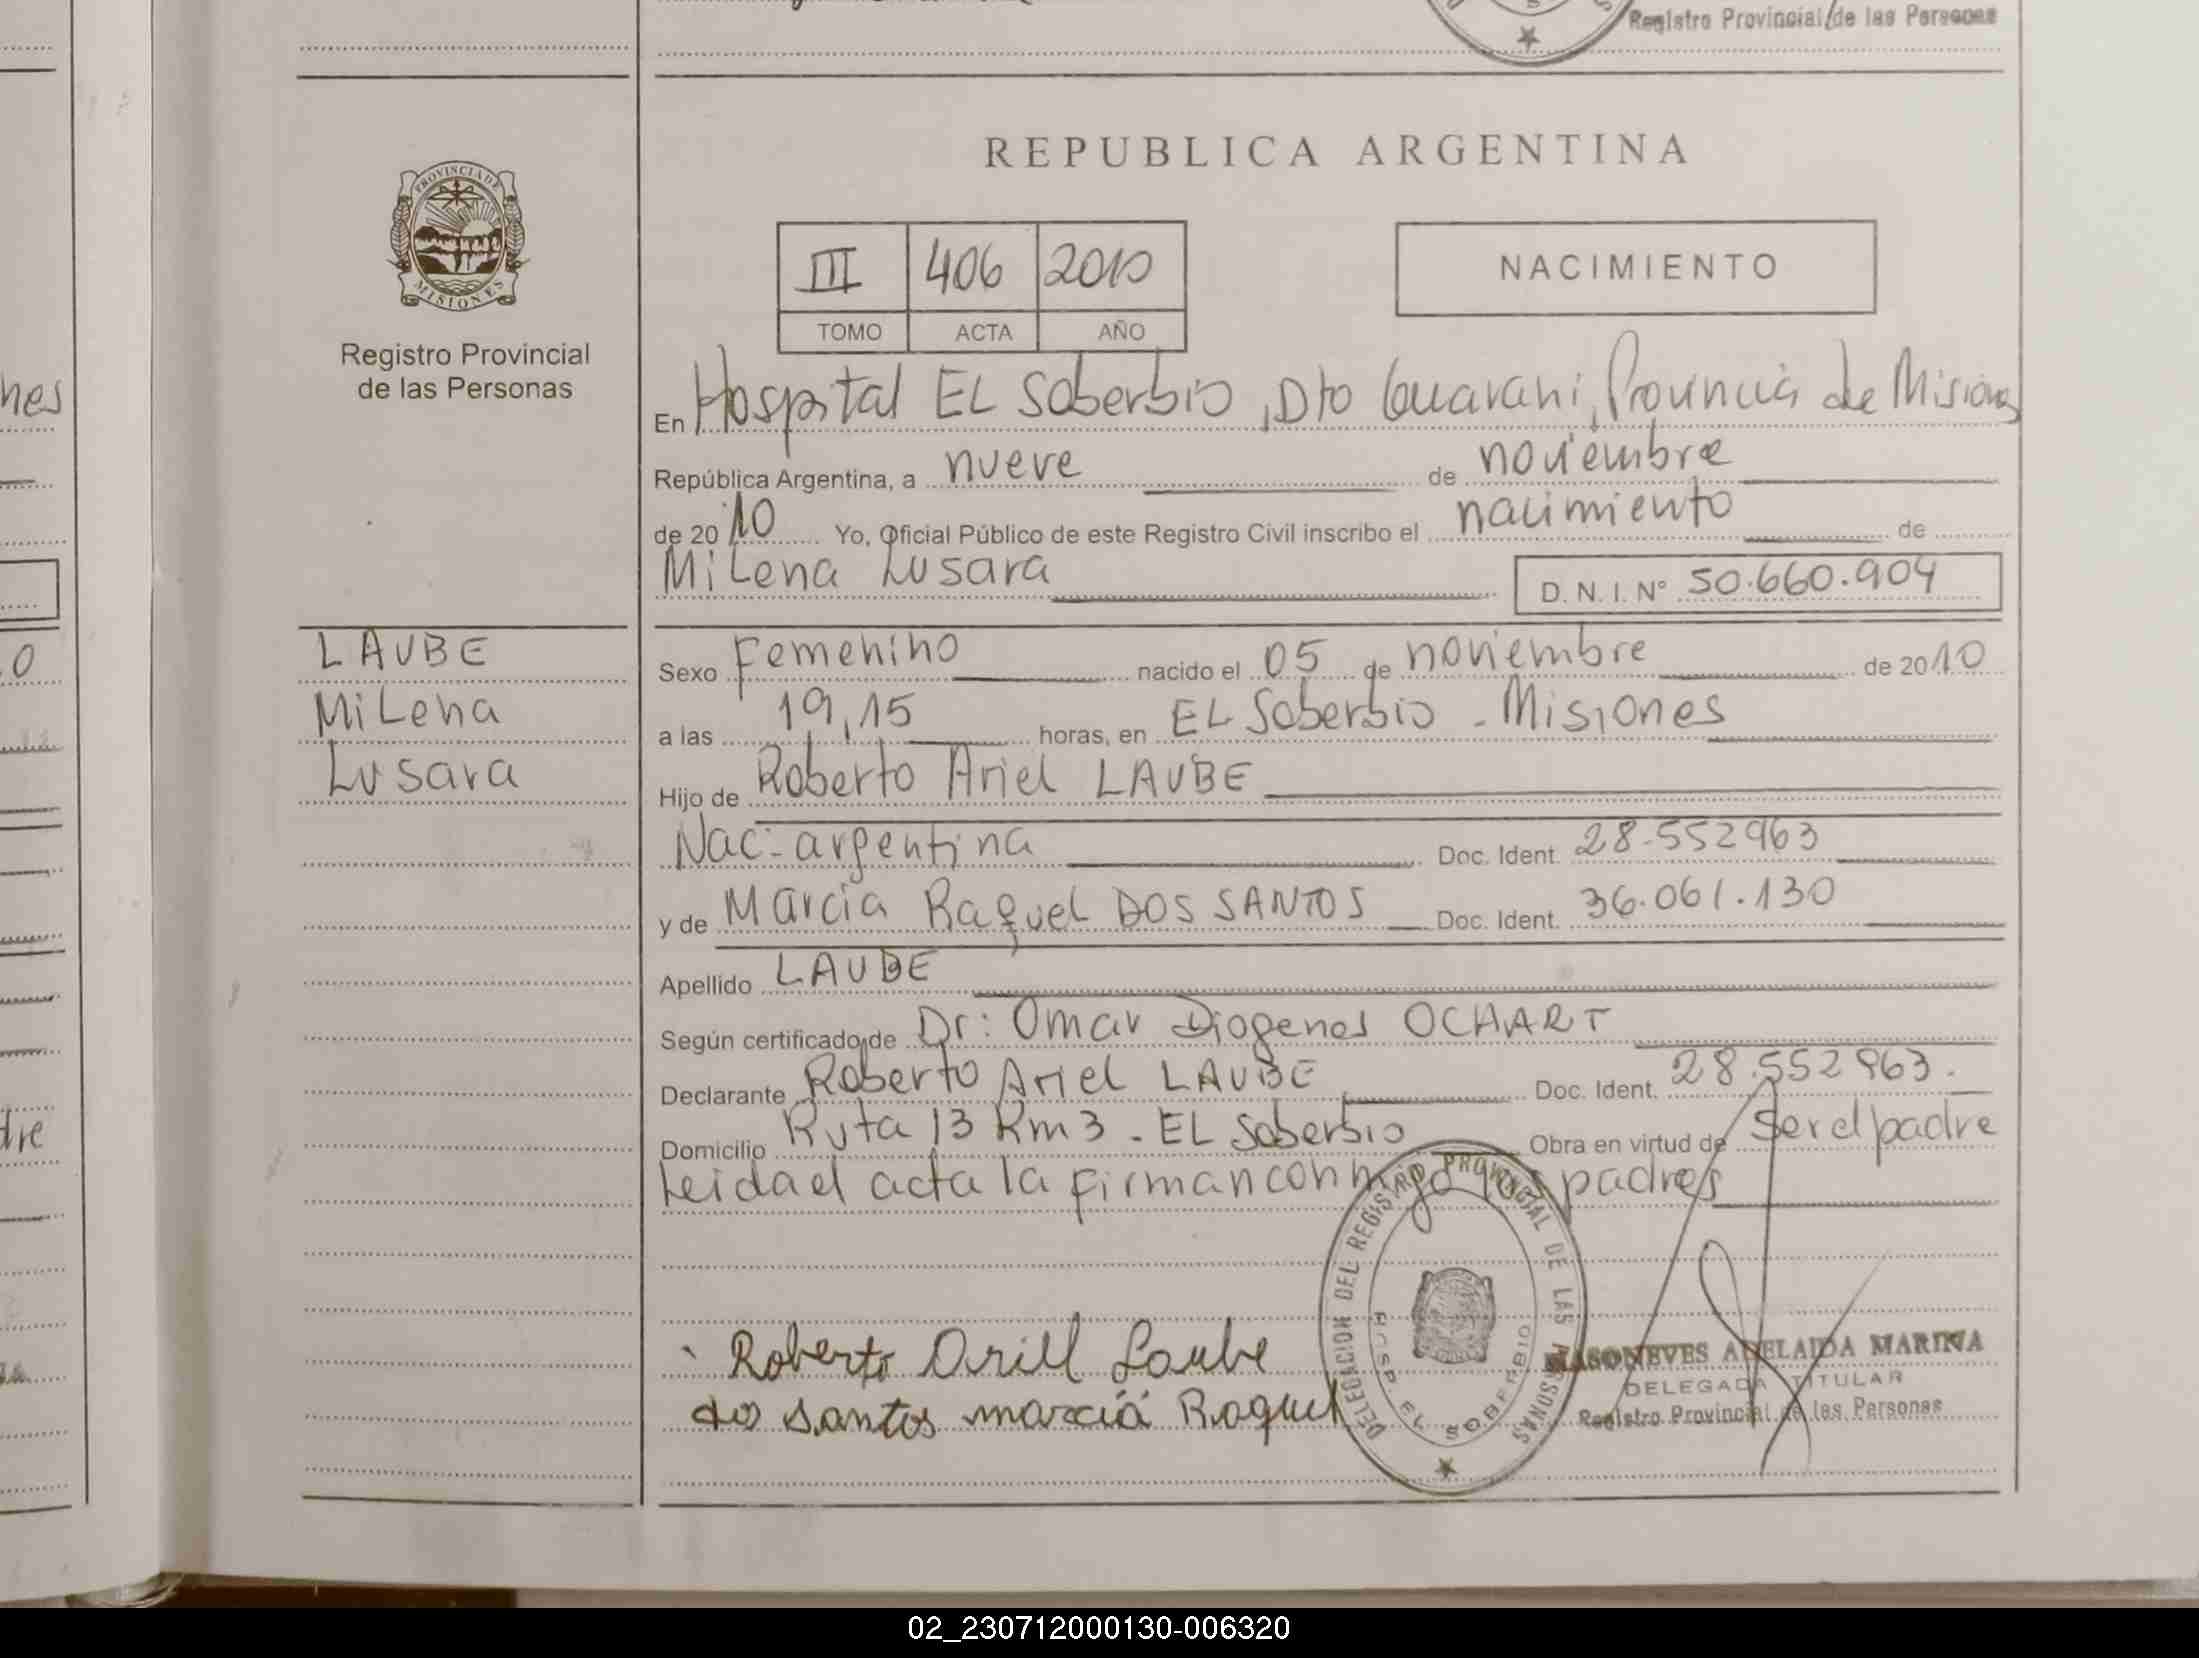 Registro Provincial de las Personas
REPUBLICA ARGENTINA
PROVINCIA DE
MISIONES
Registro Provincial
de las Personas
III 406 2010
TOMO ACTA AÑO
NACIMIENTO
En Hospital EL Soberbio, Dto Guarani, Provincia de Misiones
República Argentina, a nueve de noviembre
de 2010 Yo, Oficial Público de este Registro Civil inscribo el nacimiento de
MiLena Lusara D. N. I. Nº 50.660.904
LAUBE
MiLena
Lusara
Sexo Femenino nacido el 05 de noviembre de 2010
a las 19,15 horas, en EL Soberbio - Misiones
Hijo de Roberto Ariel LAUBE
Nac-argentina Doc. Ident. 28.552963
y de Marcia Raquel DOS SANTOS Doc. Ident. 36.061.130
Apellido LAUBE
Según certificado de Dr: Omar Diogenes OCHART
Declarante Roberto Ariel LAUBE Doc. Ident. 28.552963.
Domicilio Ruta 13 Km 3 - EL Soberbio Obra en virtud de Ser el padre
Leida el acta la firman conmigo los padres
DELEGACION DEL REGISTRO PROVINCIAL DE LAS PERSONAS
HOSP. EL SOBERBIO
Roberto Ariel Laube
dos santos marcia Raquel
MASONEVES ADELAIDA MARINA
DELEGADA TITULAR
Registro Provincial de las Personas
nes
0
dre
02_230712000130-006320